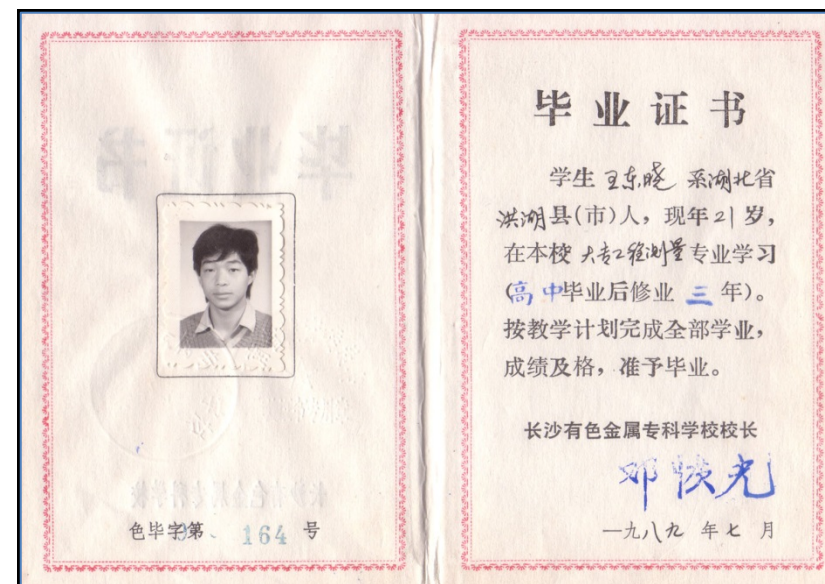 色毕字第 164 号
毕业证书
学生 王东晓 系湖北省
洪湖县(市)人，现年21岁，
在本校 大专工程测量专业学习
(高中毕业后修业 三 年)。
按教学计划完成全部学业，
成绩及格，准予毕业。
长沙有色金属专科学校校长
邓
光
一九八九 年七 月